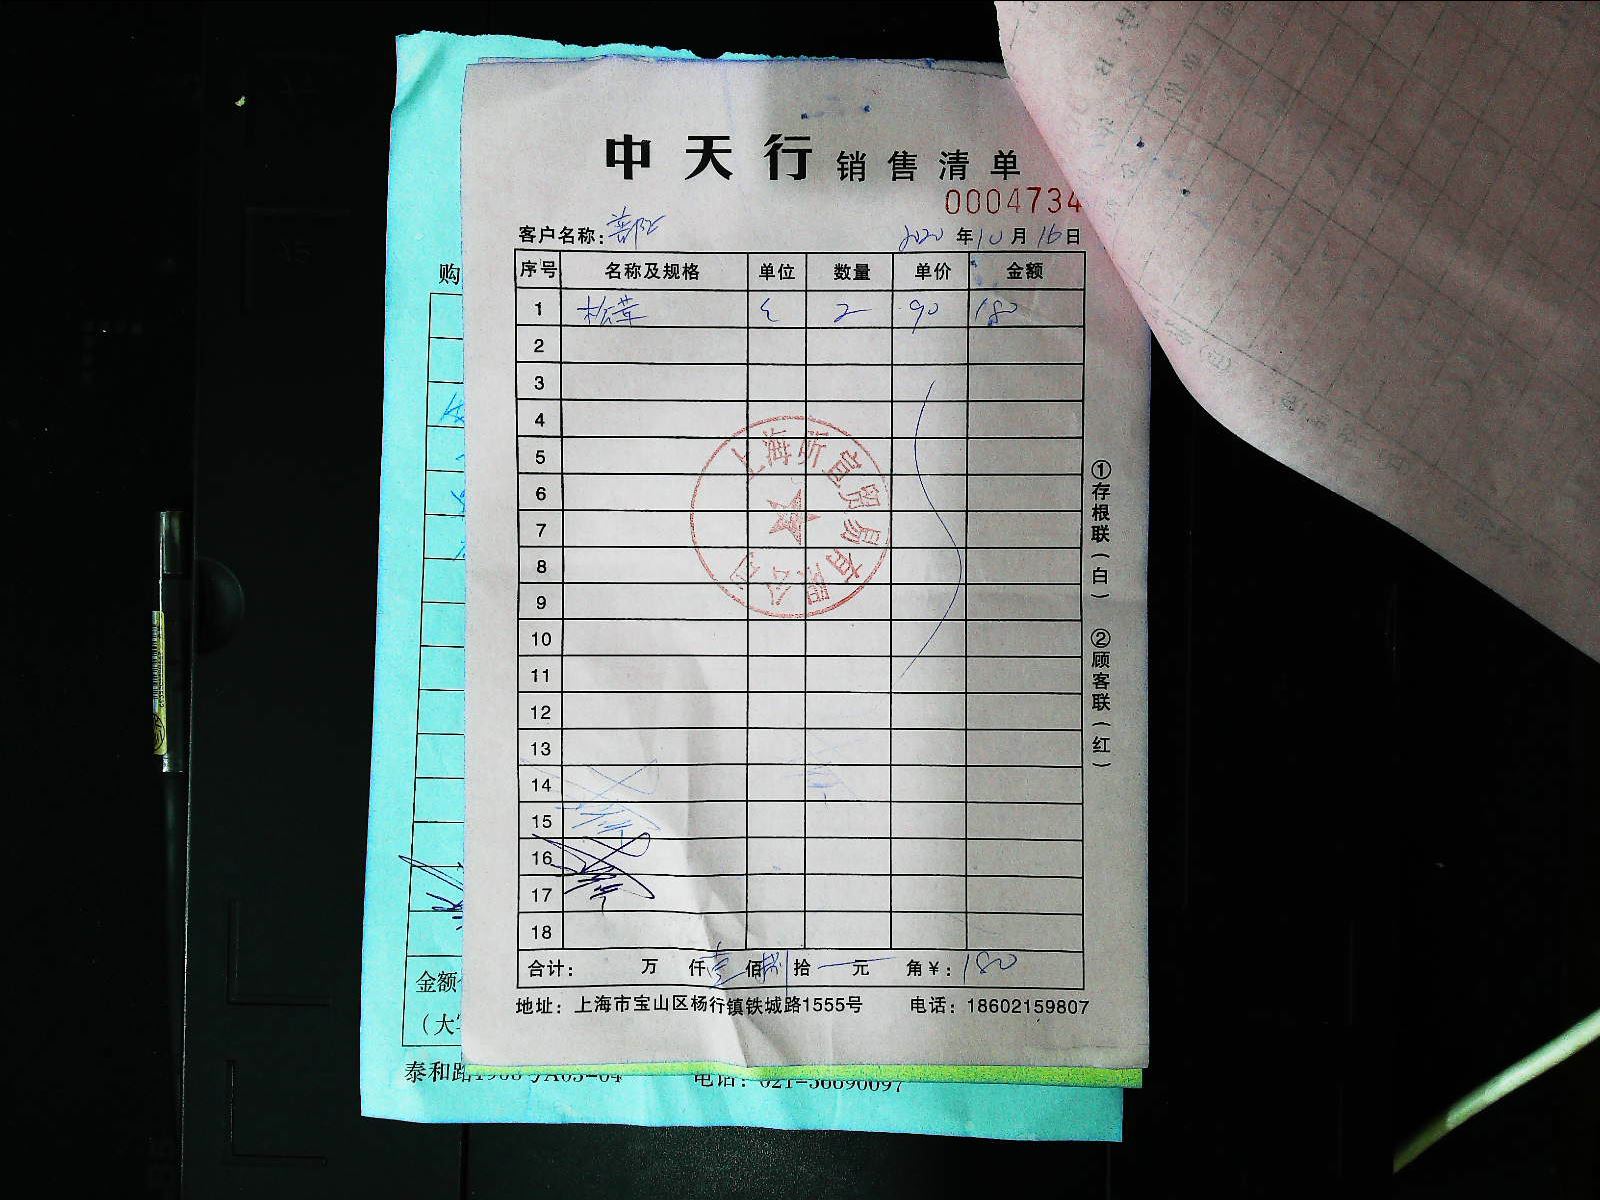 中天行 销售清单
0004734
客户名称：部队 2020年10月16日
序号 名称及规格 单位 数量 单价 金额
1 松茸 2 90 180
2
3
4
5
6
7
8
9
10
11
12
13
14
15
16
17
18
上海所宜贸易有限公司
合计： 万 仟壹佰捌拾一元 角￥：180
地址：上海市宝山区杨行镇铁城路1555号 电话：18602159807
①存根联（白） ②顾客联（红）
购
金额
（大
泰和路 电话：021-56690097